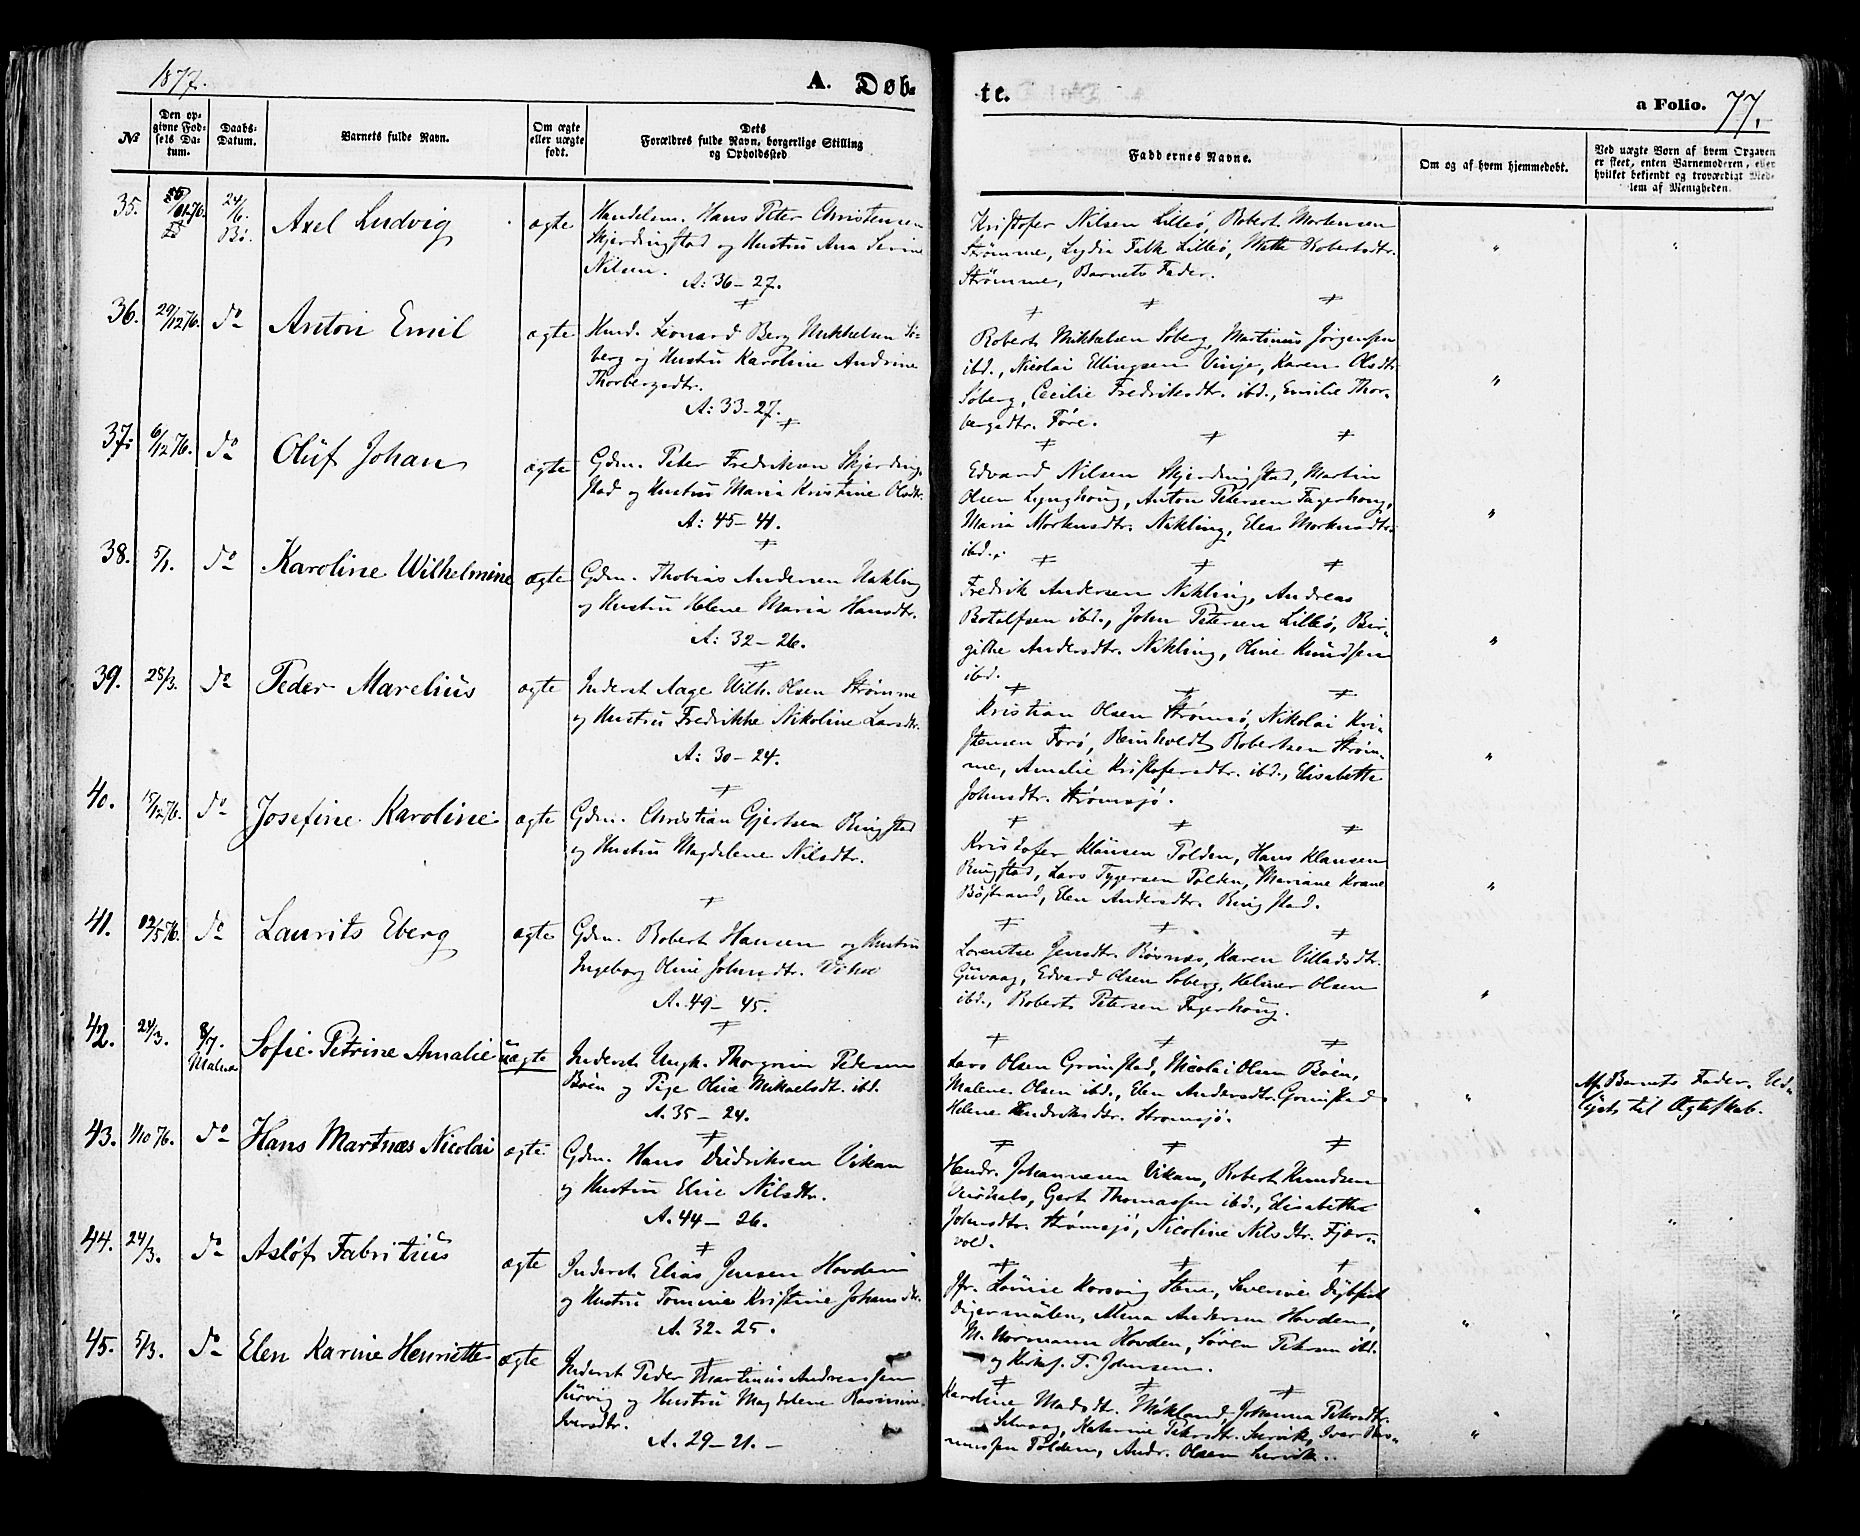 1877.
A. Døb-
te.
a Folio. 77.
№
Den op-
givne Fød-
sels Da-
tum.
Daabs-
Datum.
Barnets fulde Navn.
Om ægte
eller uægte
født.
Dets
Forældres fulde Navn, borgerlige Stilling
og Opholdssted
Faddernes Navne.
Om og af hvem hjemmedøbt.
Ved uægte Børn af hvem Opgaven
er skeet, enten Barnemoderen, eller
hvilket bekjendt og troværdigt Med-
lem af Menigheden.
35.
24/6.
Bø.
Axel Ludvig
ægte
Handelsm. Hans Peter Christensen
Skjerdingstad og Hustru Ana Serine
Nilsen.
A: 36-27.
Kristofer Nilsen Lilleø, Robert Mortensen
Strømme, Lydia Falk Lilleø, Mette Robertsdtr.
Strømme, Barnets Fader.
36. 29/12 76. do Anton Emil ægte
Leonard Berg Mikkelsen Sø-
berg og Hustru Karoline Andrine
Thorbergsdtr.
A: 33-27.
Robert Mikkelsen Søberg, Martinus Jørgensen
ibd., Nicolai Ellingsen Vinje, Karen Olsdtr.
Søberg, Cecilie Fredriksdtr. ibd., Emilie Thor-
bergsdtr. Føre.
37. 6/12 76. do Oluf Johan ægte
Gdm. Peter Fredriksen Skjerding-
stad og Hustru Maria Kristine Olsdtr.
A: 45-41.
Edvard Nilsen Skjerdingstad, Martin
Olsen Lynghoug, Anton Petersen Fagerhoug,
Maria Mortensdtr. Nikling, Elea Mortensdtr.
ibd.
38. 5/1. do Karoline Wilhelmine ægte
Gdm. Thobias Andersen Nikling
og Hustru Helene Maria Hansdtr.
A: 32-26.
Fredrik Andersen Nikling, Andreas
Botolfsen ibd., John Petersen Lilleø, Bir-
githe Andersdtr. Nikling, Oline Knudsen
ibd.
39. 28/3. do Peder Marelius ægte
Inderst Aage Wilh. Olsen Strømme
og Hustru Fredrikke Nikoline Larsdtr.
A: 30-24.
Kristian Olsen Strømsø, Nikolai Kri-
stensen Forø, Reinholdt Robertsen Strøm-
me, Amalie Kristofersdtr. ibd., Elisabeth
Johnsdtr. Strømsjø.
40. 15/12 76. do Josefine Karoline ægte
Gdm. Christian Gjertsen Ringstad
og Hustru Magdelene Nilsdtr.
Kristofer Klausen Tolden, Hans Klausen
Ringstad, Lars Tygersen Tolden, Mariane Krane
Bøstrand, Elen Andersdtr. Ringstad.
41. 12/5 76. do Laurits Eberg ægte
Gdm. Robert Hansen og Hustru
Ingeborg Oline Johnsdtr.
A. 49-45.
Lorentse Jensdtr. Røsnæs, Karen Villadsdtr.
Guvaag, Edvard Olsen Søberg, Helmer Olsen
ibd., Robert Petersen Fagerhoug.
42. 24/3. 8/7. Malnes Sofie Petrine Amalie uægte
Inderst Ungk. Thorgrim Pedersen
Bøen og Pige Olria Mikaelsdt. ibd.
A. 35-24.
Lars Olsen Grimstad, Nicolai Olsen Bøen,
Malene Olsen ibd., Elen Andersdtr. Grimstad
Helene Hendriksdtr. Strømsjø.
Af Barnets Fader. Ud-
lyst til Ægteskab.
43. 1/10 76. do Hans Martnæs Nicolai ægte
Gdm. Hans Didriksen Vikan
og Hustru Elise Nilsdtr.
A. 44-26.
Hendr. Johannesen Vikan, Robert Knudsen
Gert Thomassen ibd., Elisabeth
Johnsdtr. Strømsjø, Nicoline Nilsdtr. Fjær-
vold.
44. 24/3. do Asløf Fabritius ægte
Inderst Elias Jensen Hovden
og Hustru Tomine Kristine Johansdtr.
A. 32-25.
Jfr. Lovise Korsvig Stene, Severine Dybfest
Digermulen, Alma Andersen Hovden,
M. Normann Hovden, Søren Petersen ibd.
og Kristof. T. Johnsen.
45. 5/3. do Elen Karine Henriette ægte
Inderst Peder Martinus Andreassen
Survig og Hustru Magdelene Rasmine
Iversdtr.
A. 29-21.
Karoline Madsdt. Møkland, Johanna Petersdtr.
Selvaag, Katrine Petersdtr. Survik, Iver Ras-
mussen Tolden, Andr. Olsen Survik.